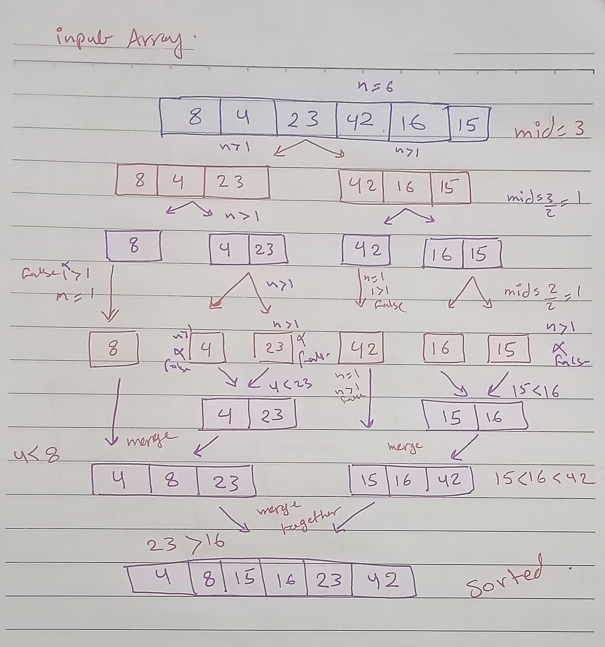 input Array.
n = 6
8 4 23 42 16 15
mid = 3
n>1 n>1
8 4 23 42 16 15
mid = 3/2 = 1
n>1
8 4 23 42 16 15
false 1>1
n = 1
n>1
n=1
1>1
false
mid = 2/2 = 1
n>1 n>1
8 4 23 42 16 15
false false false
4<23
n=1
n>1
false
15<16
4 23 15 16
4<8
merge merge
4 8 23 15 16 42
15<16<42
merge
together
23 >16
4 8 15 16 23 42
Sorted.